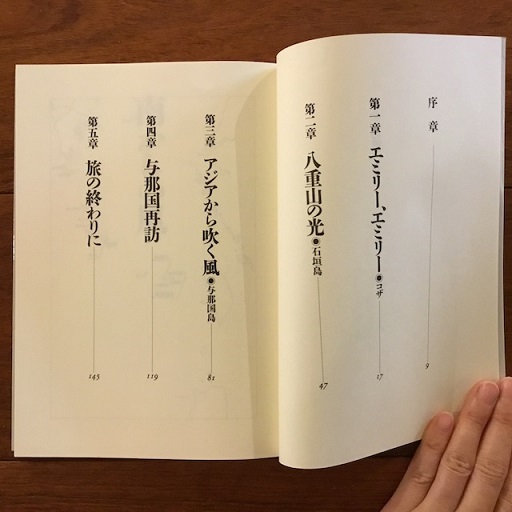 序章 9
第一章 エミリー、エミリー◉コザ 17
第二章 八重山の光◉石垣島 47
第三章 アジアから吹く風◉与那国島 81
第四章 与那国再訪 119
第五章 旅の終わりに 145